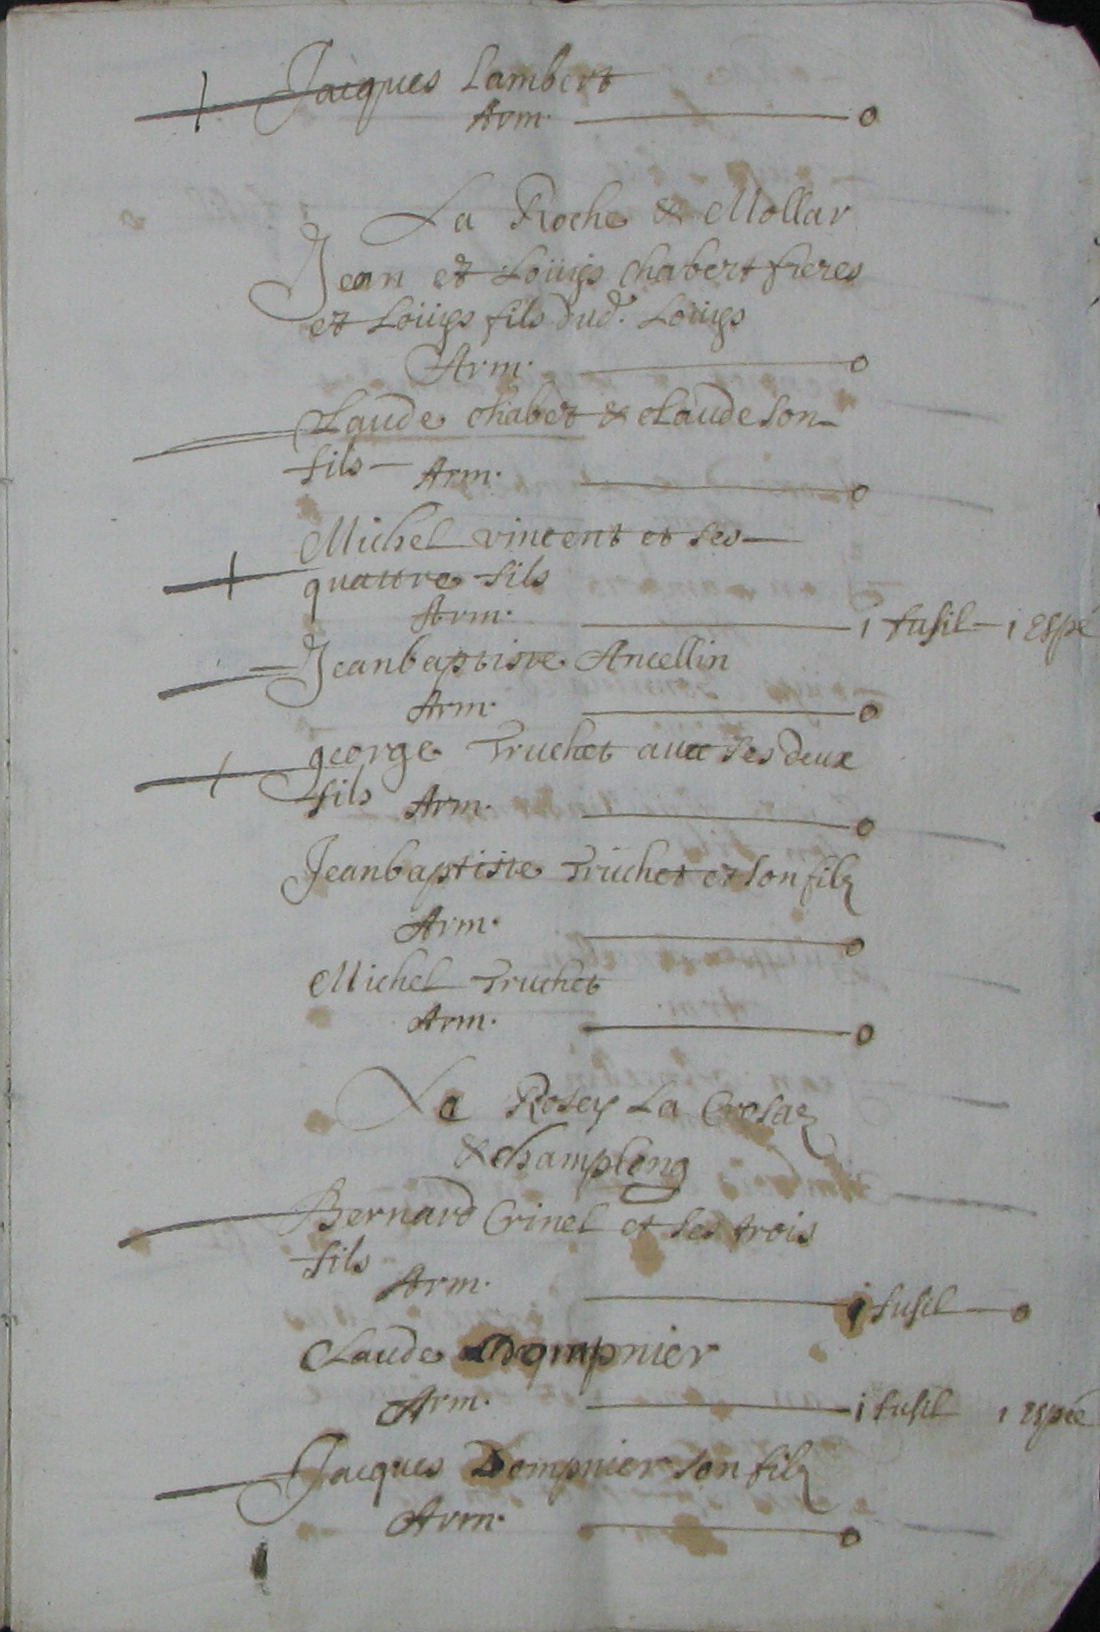 Jacques Lambert
Arm. o
La Roche & Mollar
Jean et Loüys Chabert freres
et Loüys fils dud. Loüys
Arm. o
Claude Chabert & Claude son
fils Arm. o
Michel vincent et ses
quattre fils
Arm. 1 fusil 1 espé
Jeanbaptiste Ancellin
Arm. o
george Truchet avec ses deux
fils Arm. o
Jeanbaptiste Truchet et son filz
Arm. o
Michel Truchet
Arm. o
Le Rosey La Crosaz
& Champlong
Bernard Crinel et ses trois
fils
Arm. 1 fusil o
Claude Dompnier
Arm. 1 fusil 1 espée
Jacques Dompnier son filz
Arm. o